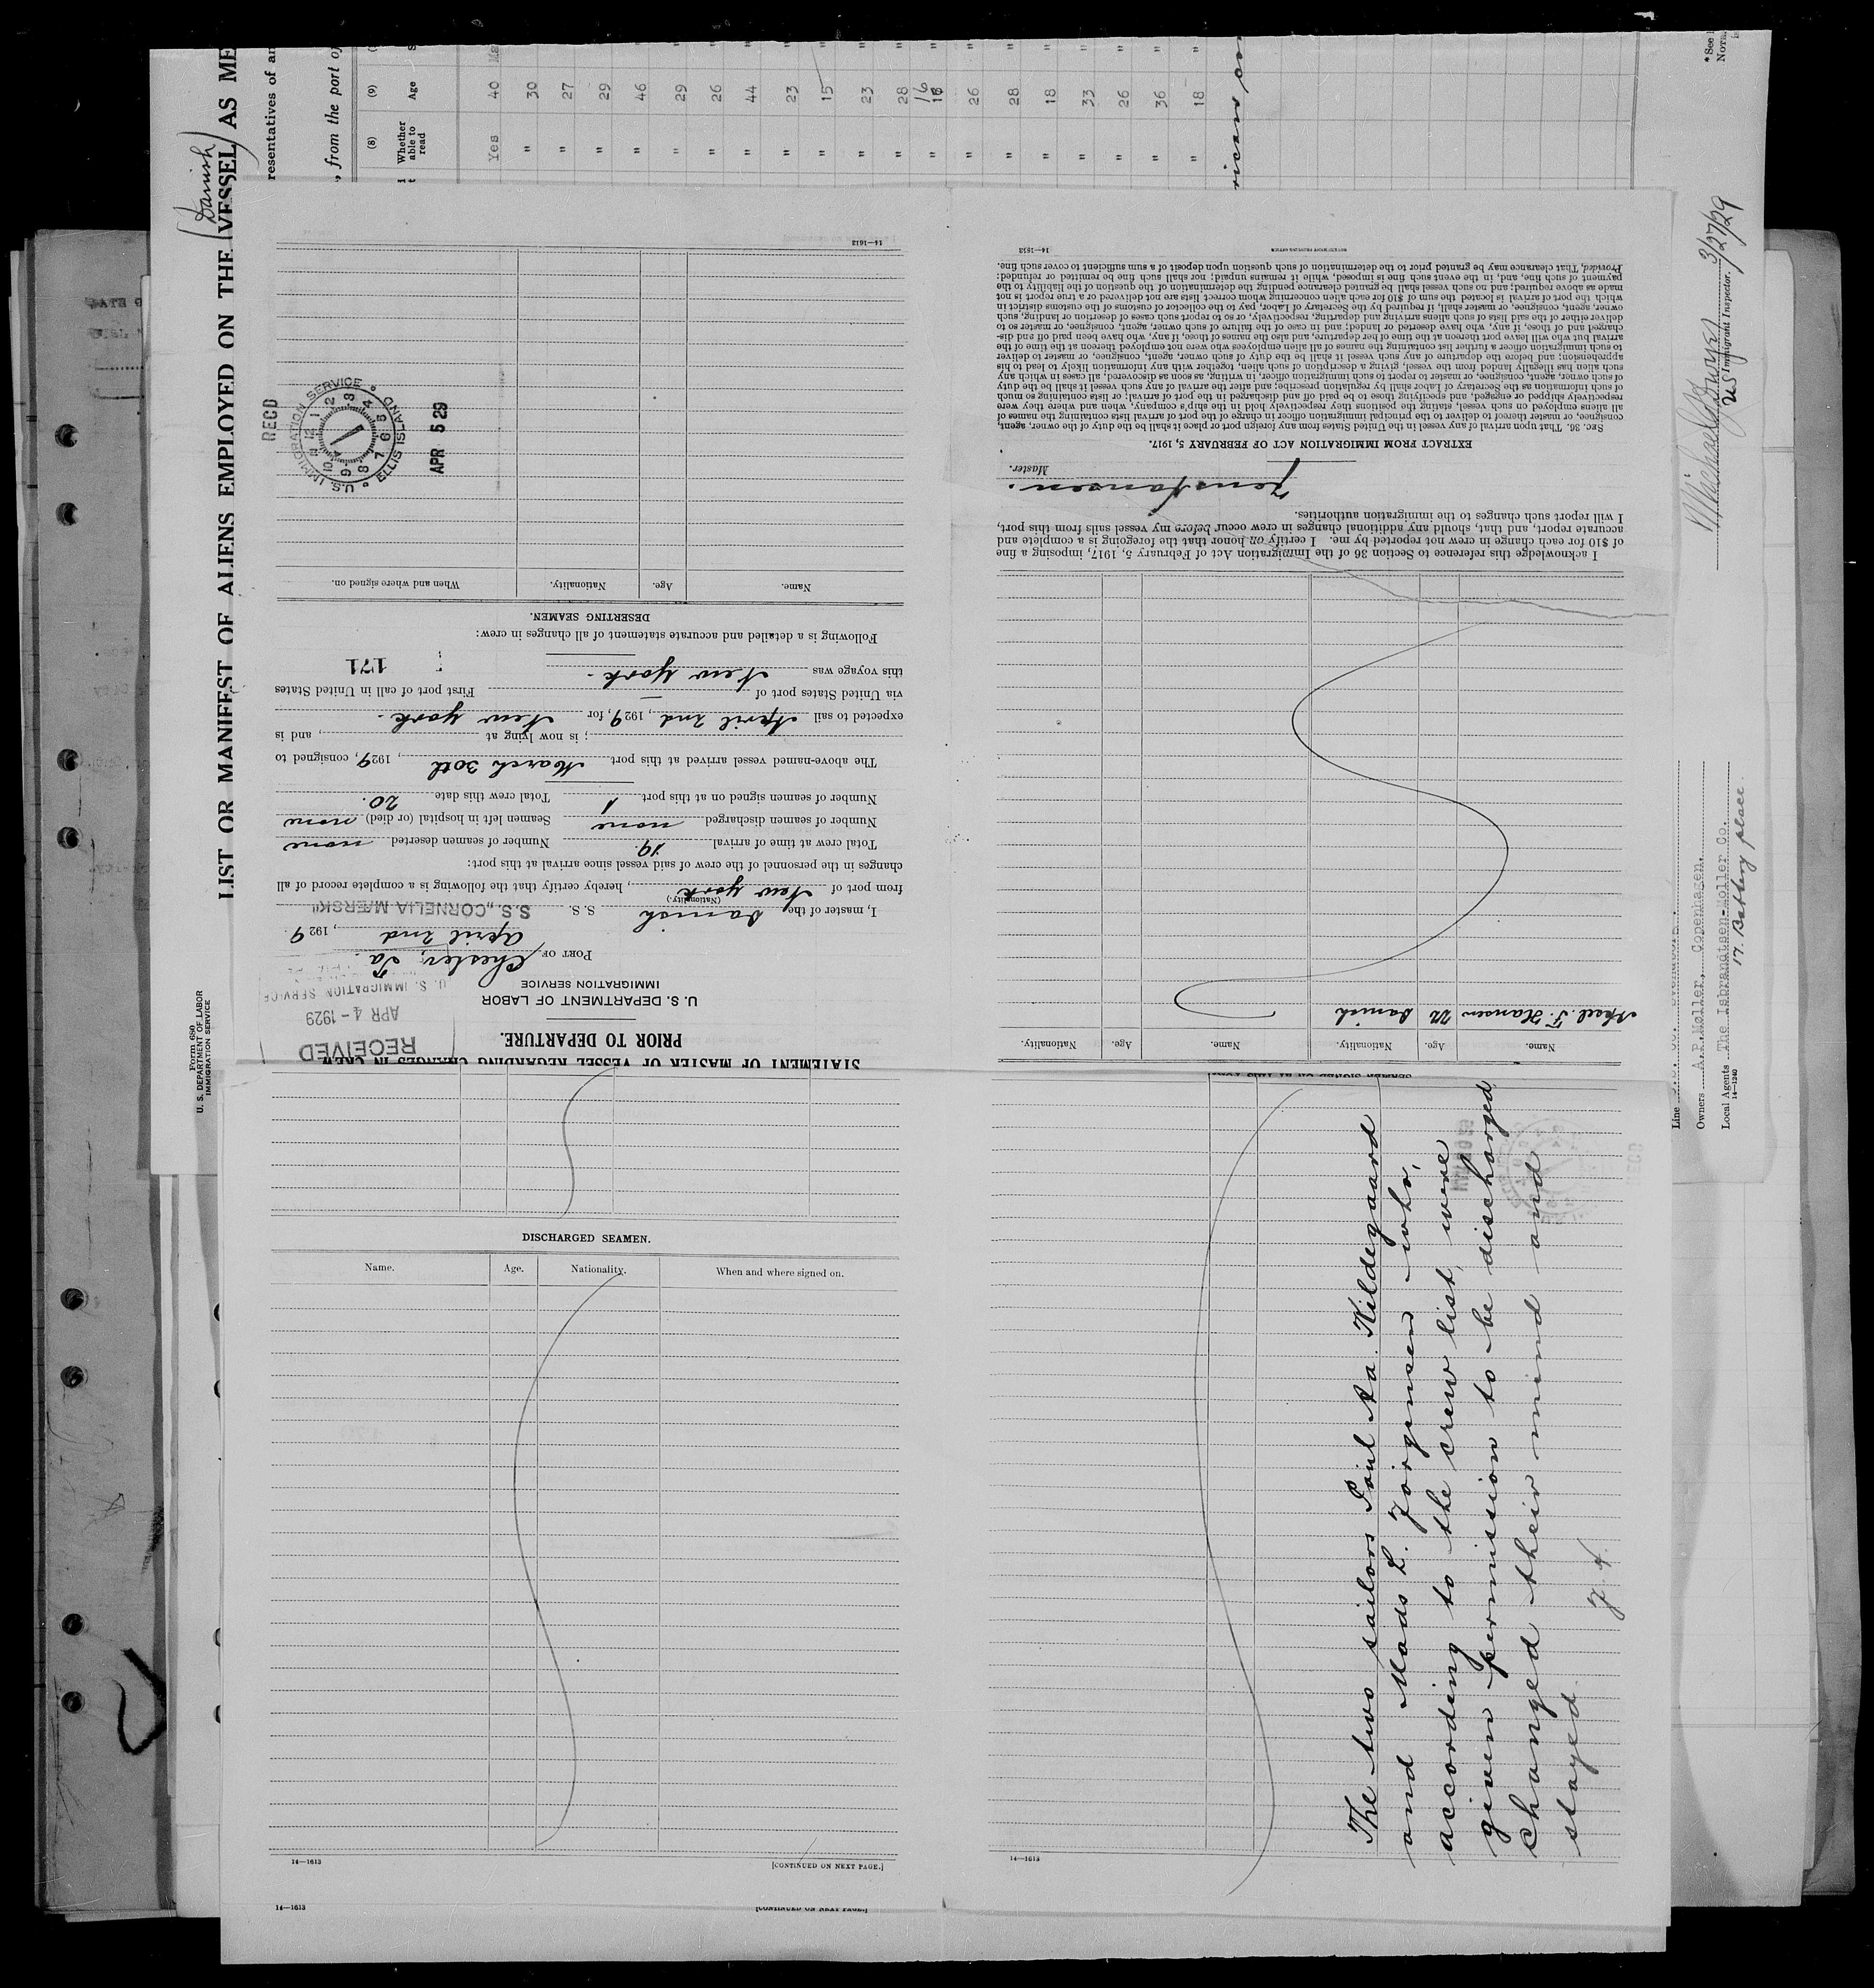 (Danish)
LIST OR MANIFEST OF ALIENS EMPLOYED ON THE VESSEL AS ME
resentatives of an
, from the port of
(8)
(9)
Whether able to read
Age
Yes 40
" 30
" 27
" 29
" 46
" 29
" 26
" 44
" 23
" 15
" 23
" 28
" 16
" 26
" 28
" 18
" 33
" 26
" 36
" 18
Form 680
U. S. DEPARTMENT OF LABOR
IMMIGRATION SERVICE
STATEMENT OF MASTER OF VESSEL REGARDING CHANGES IN CREW
PRIOR TO DEPARTURE.
RECEIVED
APR 4-1929
U. S. IMMIGRATION SERVICE
U. S. DEPARTMENT OF LABOR
IMMIGRATION SERVICE
PORT OF Chester, Pa.
April 2nd, 1929.
I, master of the Danish S. S. S.S. "CORNELIA MÆRSK"
(Nationality.)
from port of New York, hereby certify that the following is a complete record of all
changes in the personnel of the crew of said vessel since arrival at this port:
Total crew at time of arrival 19. Number of seamen deserted none
Number of seamen discharged none Seamen left in hospital (or died) none
Number of seamen signed on at this port 1 Total crew this date 20.
The above-named vessel arrived at this port March 30th, 1929, consigned to
; is now lying at , and is
expected to sail April 2nd, 1929, for New York.
via United States port of — First port of call in United States
this voyage was New York.
171
Following is a detailed and accurate statement of all changes in crew:
DESERTING SEAMEN.
Name. Age. Nationality. When and where signed on.
RECD
U.S. IMMIGRATION SERVICE
ELLIS ISLAND
APR 5 29
14—1613
DISCHARGED SEAMEN.
Name. Age. Nationality. When and where signed on.
14—1613
[CONTINUED ON NEXT PAGE.]
14—1613
[CONTINUED ON NEXT PAGE.]
SEAMEN SIGNED ON AT THIS PORT
Name. Age. Nationality. Name. Age. Nationality.
Axel F. Hansen 22 Danish
I acknowledge this reference to Section 36 of the Immigration Act of February 5, 1917, imposing a fine
of $10 for each change in crew not reported by me. I certify on honor that the foregoing is a complete and
accurate report, and that, should any additional changes in crew occur before my vessel sails from this port,
I will report such changes to the immigration authorities.
Jens Hansen.
Master.
EXTRACT FROM IMMIGRATION ACT OF FEBRUARY 5, 1917.
SEC. 36. That upon arrival of any vessel in the United States from any foreign port or place it shall be the duty of the owner, agent,
consignee, or master thereof to deliver to the principal immigration officer in charge of the port of arrival lists containing the names of
all aliens employed on such vessel, stating the positions they respectively hold in the ship's company, when and where they were
respectively shipped or engaged, and specifying those to be paid off and discharged in the port of arrival; or lists containing so much
of such information as the Secretary of Labor shall by regulation prescribe; and after the arrival of any such vessel it shall be the duty
of such owner, agent, consignee, or master to report to such immigration officer, in writing, as soon as discovered, all cases in which any
such alien has illegally landed from the vessel, giving a description of such alien, together with any information likely to lead to his
apprehension; and before the departure of any such vessel it shall be the duty of such owner, agent, consignee, or master to deliver
to such immigration officer a further list containing the names of all alien employees who were not employed thereon at the time of the
arrival but who will leave port thereon at the time of her departure, and also the names of those, if any, who have been paid off and dis-
charged and of those, if any, who have deserted or landed; and in case of the failure of such owner, agent, consignee, or master so to
deliver either of the said lists of such aliens arriving and departing, respectively, or so to report such cases of desertion or landing, such
owner, agent, consignee, or master, shall, if required by the Secretary of Labor, pay to the collector of customs of the customs district in
which the port of arrival is located the sum of $10 for each alien concerning whom correct lists are not delivered or a true report is not
made as above required; and no such vessel shall be granted clearance pending the determination of the question of the liability to the
payment of such fine, and, in the event such fine is imposed, while it remains unpaid; nor shall such fine be remitted or refunded:
Provided, That clearance may be granted prior to the determination of such question upon deposit of a sum sufficient to cover such fine.
14—1613
GOVERNMENT PRINTING OFFICE
The two sailors Poul Aa. Kildegaard
and Mads L. Jörgensen who,
according to the crew list, were
given permission to be discharged
changed their mind and
stayed.
J. H.
14—1613
3/27/29
US Immigrant Inspector.
Line
Owners A.P.Møller, Copenhagen.
Local Agents The Isbrandtsen-Moller Co.
14—1240
17. Battery place